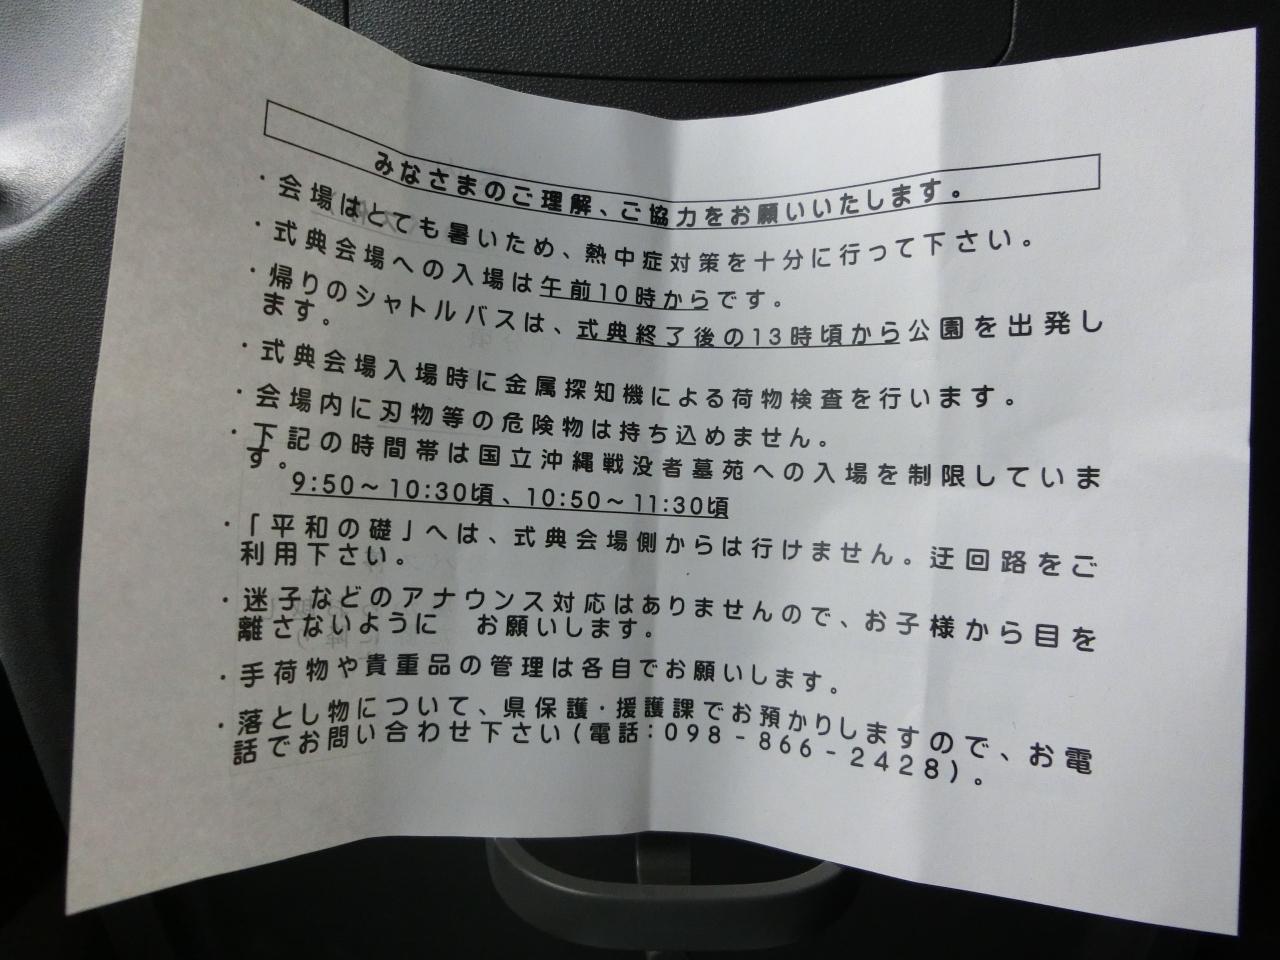 みなさまのご理解、ご協力をお願いいたします。
・会場はとても暑いため、熱中症対策を十分に行って下さい。
・式典会場への入場は午前10時からです。
・帰りのシャトルバスは、式典終了後の13時頃から公園を出発し
ます。
・式典会場入場時に金属探知機による荷物検査を行います。
・会場内に刃物等の危険物は持ち込めません。
・下記の時間帯は国立沖縄戦没者墓苑への入場を制限していま
す。
9:50～10:30頃、10:50～11:30頃
・「平和の礎」へは、式典会場側からは行けません。迂回路をご
利用下さい。
・迷子などのアナウンス対応はありませんので、お子様から目を
離さないように　お願いします。
・手荷物や貴重品の管理は各自でお願いします。
・落とし物について、県保護・援護課でお預かりしますので、お電
話でお問い合わせ下さい(電話：098－866－2428)。